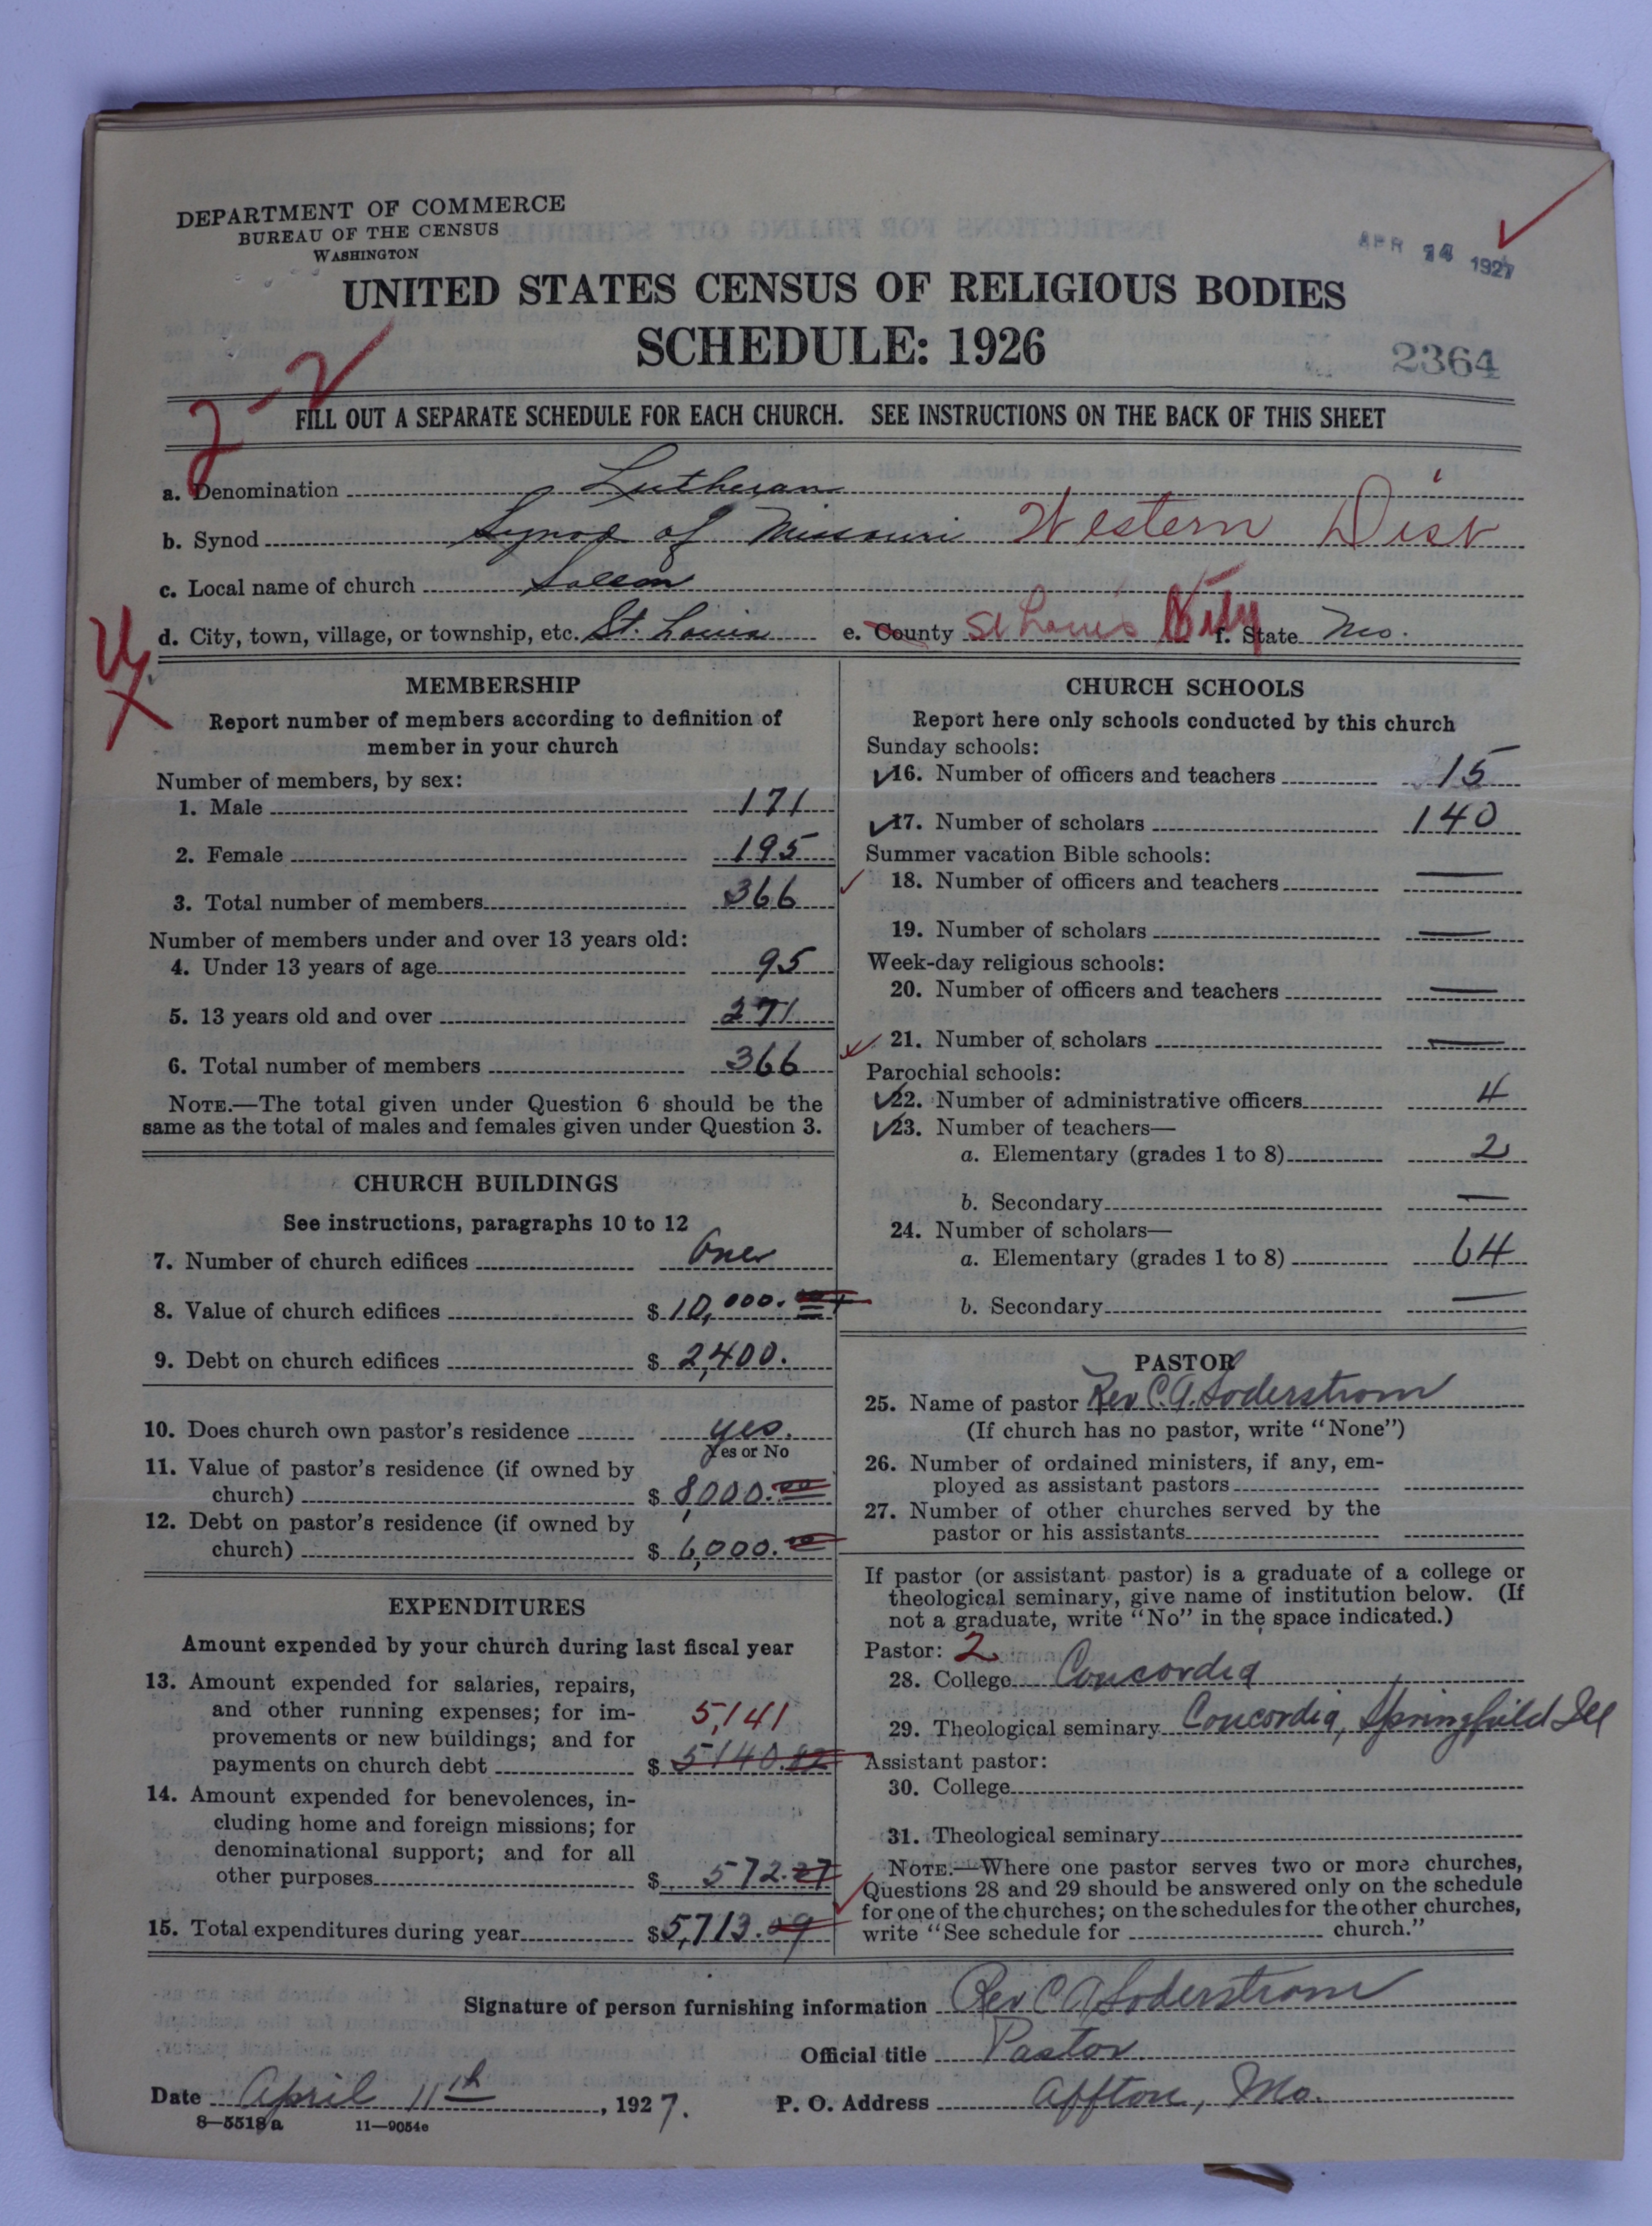 DEPARTMENT OF COMMERCE
BUREAU OF THE CENSUS
WASHINGTON
APR 14 1927
UNITED STATES CENSUS OF RELIGIOUS BODIES
SCHEDULE: 1926
2364
2-2
FILL OUT A SEPARATE SCHEDULE FOR EACH CHURCH. SEE INSTRUCTIONS ON THE BACK OF THIS SHEET
a. Denomination Lutheran
b. Synod Synod of Missouri Western Dist
c. Local name of church Salem
d. City, town, village, or township, etc. St. Louis e. County St Louis City f. State Mo.
MEMBERSHIP
Report number of members according to definition of
member in your church
Number of members, by sex:
1. Male 171
2. Female 195
3. Total number of members 366
Number of members under and over 13 years old:
4. Under 13 years of age 95
5. 13 years old and over 271
6. Total number of members 366
NOTE.—The total given under Question 6 should be the
same as the total of males and females given under Question 3.
CHURCH BUILDINGS
See instructions, paragraphs 10 to 12
7. Number of church edifices One
8. Value of church edifices $ 10,000.
9. Debt on church edifices $ 2,400.
10. Does church own pastor's residence yes.
Yes or No
11. Value of pastor's residence (if owned by
church) $ 8,000.00
12. Debt on pastor's residence (if owned by
church) $ 6,000.00
EXPENDITURES
Amount expended by your church during last fiscal year
13. Amount expended for salaries, repairs,
and other running expenses; for im-
provements or new buildings; and for
payments on church debt $ 5140.82
5,141
14. Amount expended for benevolences, in-
cluding home and foreign missions; for
denominational support; and for all
other purposes $ 572.27
15. Total expenditures during year $5,713.09
CHURCH SCHOOLS
Report here only schools conducted by this church
Sunday schools:
16. Number of officers and teachers 15
17. Number of scholars 140
Summer vacation Bible schools:
18. Number of officers and teachers —
19. Number of scholars —
Week-day religious schools:
20. Number of officers and teachers —
21. Number of scholars —
Parochial schools:
22. Number of administrative officers 4
23. Number of teachers—
a. Elementary (grades 1 to 8) 2
b. Secondary —
24. Number of scholars—
a. Elementary (grades 1 to 8) 64
b. Secondary —
PASTOR
25. Name of pastor Rev C.A. Soderstrom
(If church has no pastor, write "None")
26. Number of ordained ministers, if any, em-
ployed as assistant pastors
27. Number of other churches served by the
pastor or his assistants
If pastor (or assistant pastor) is a graduate of a college or
theological seminary, give name of institution below. (If
not a graduate, write "No" in the space indicated.)
Pastor: 2
28. College Concordia
29. Theological seminary Concordia, Springfield Ill
Assistant pastor:
30. College
31. Theological seminary
NOTE.—Where one pastor serves two or more churches,
Questions 28 and 29 should be answered only on the schedule
for one of the churches; on the schedules for the other churches,
write "See schedule for church."
Signature of person furnishing information Rev C A Soderstrom
Official title Pastor
Date April 11th, 1927. P. O. Address Affton, Mo.
8—5518a 11—9054c